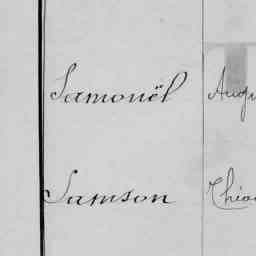 Samouël Augu
Samson Thiod